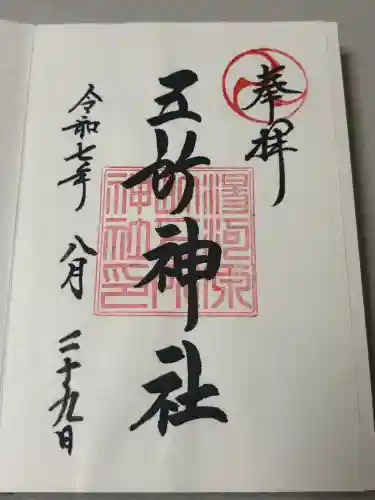 奉拝
五所神社
令和七年 八月 二十九日
湯河原
神社印